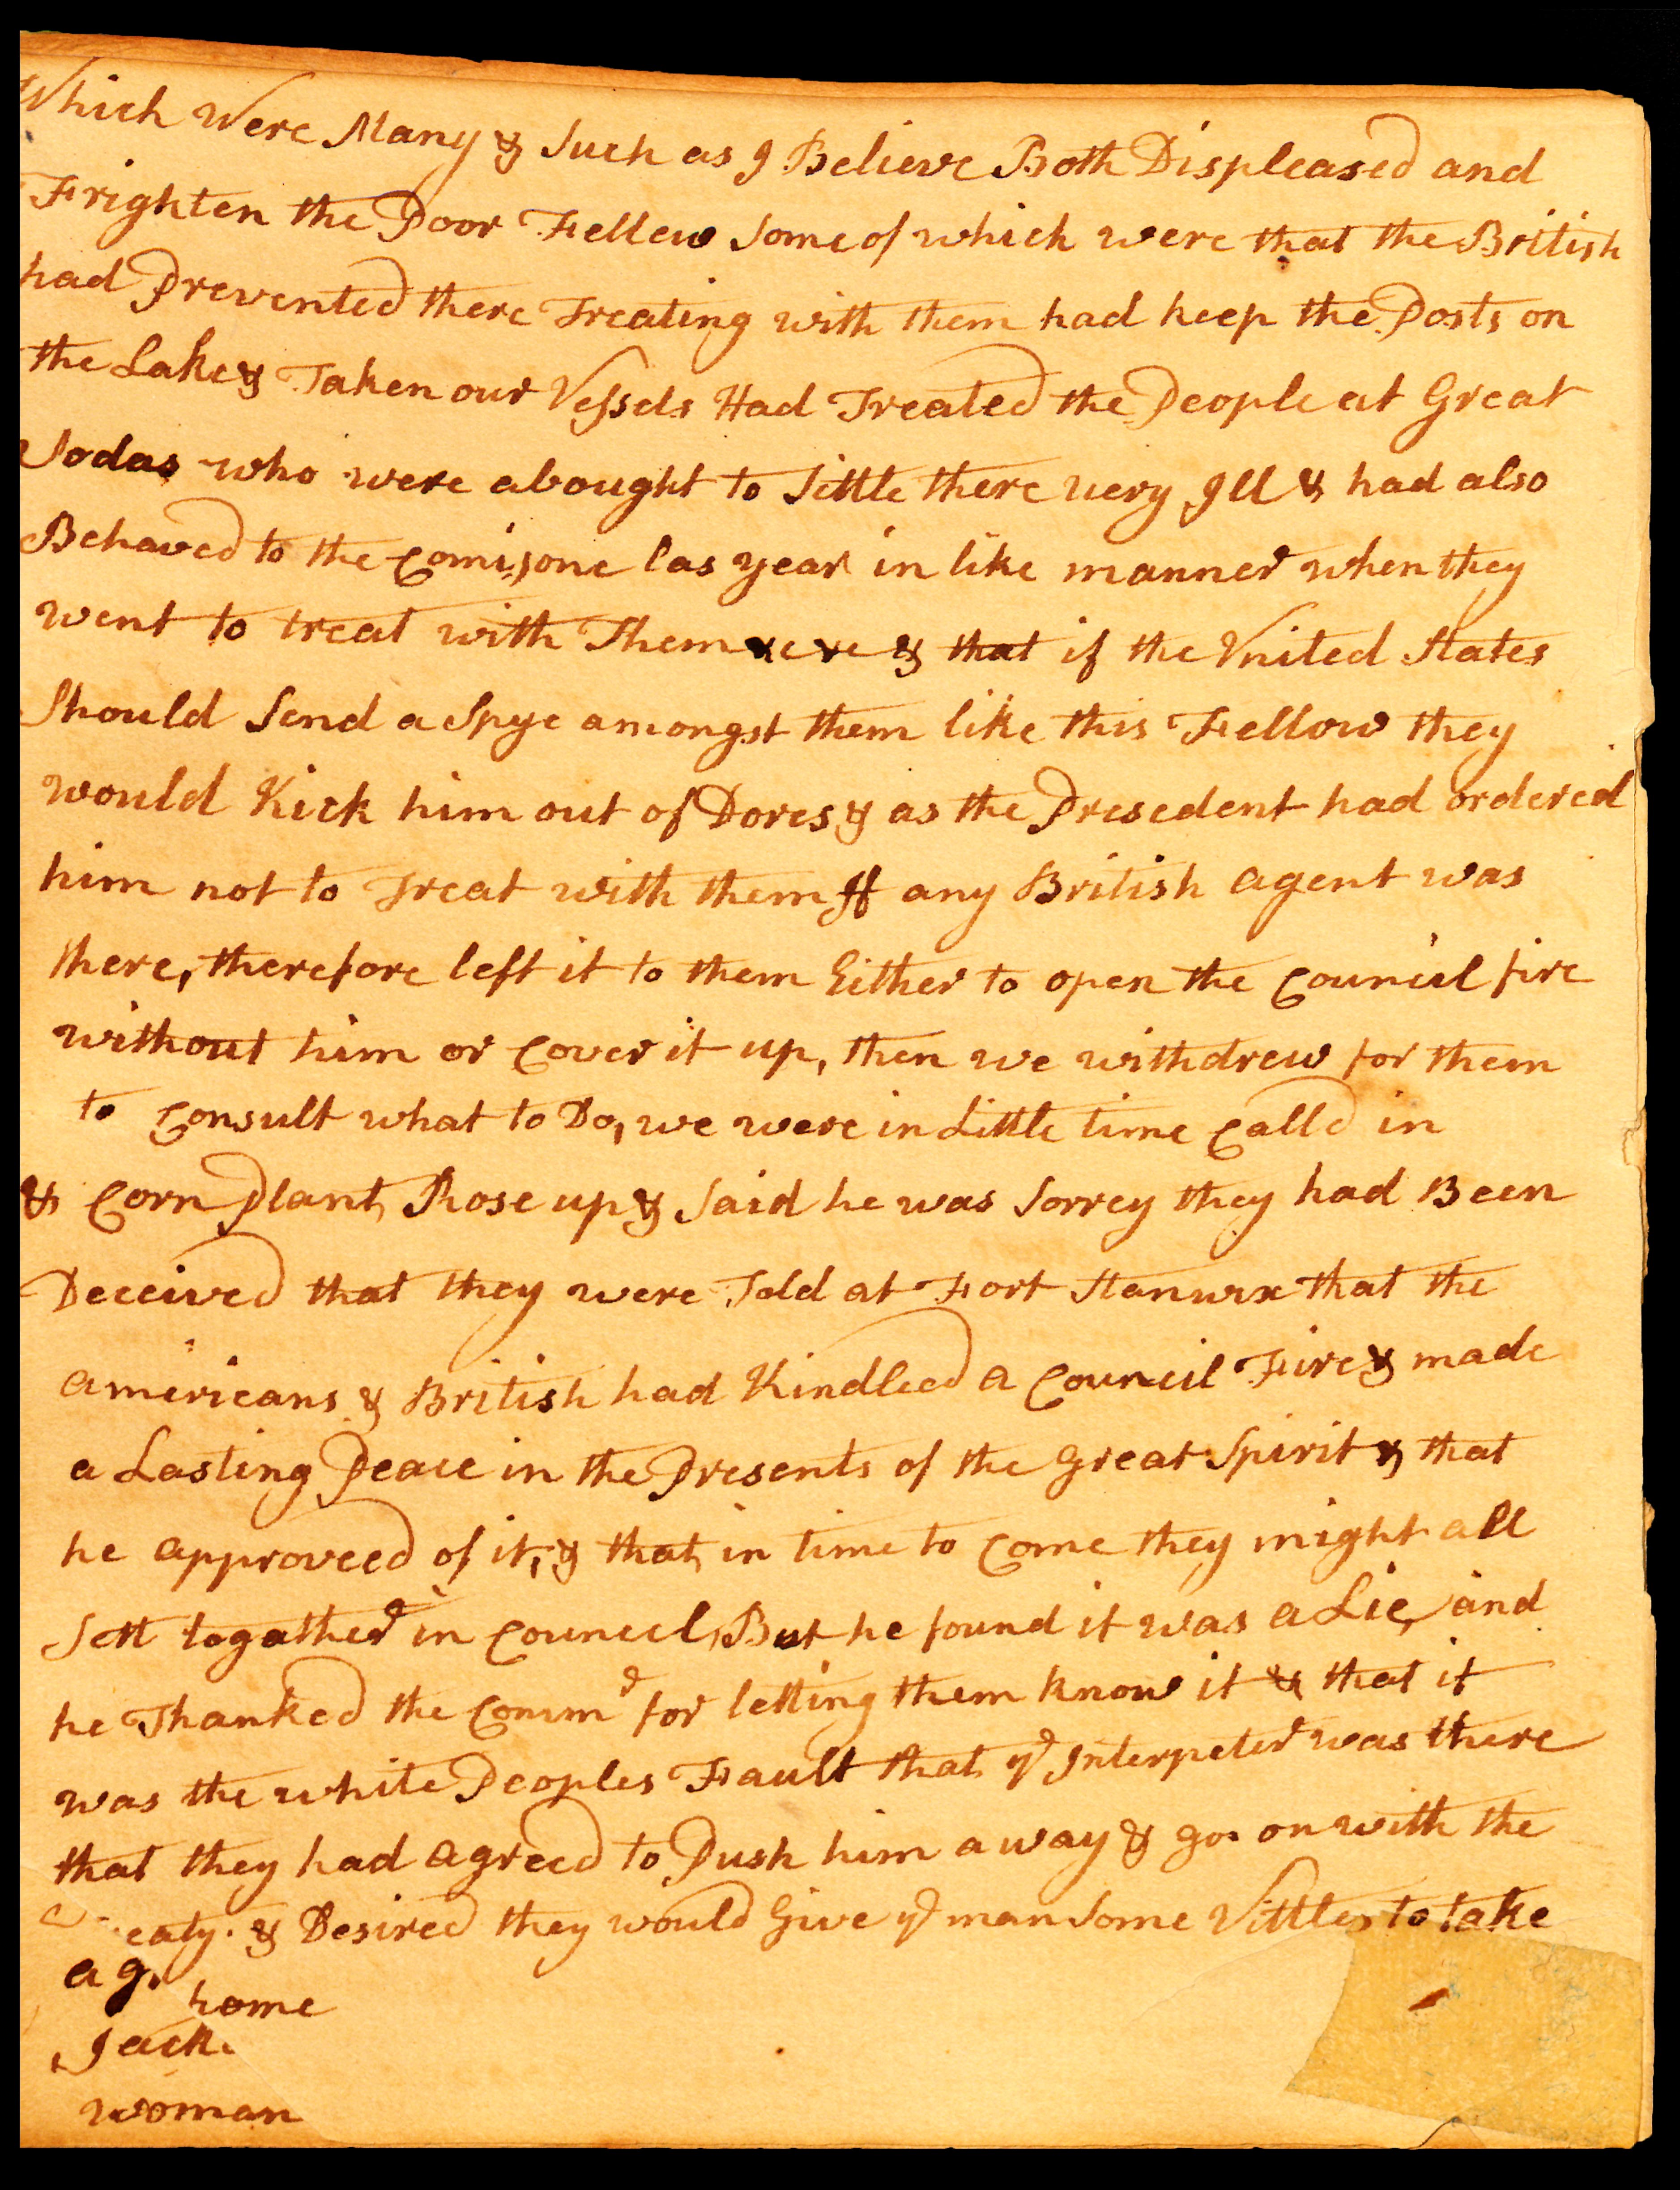 Which Were Many & Such as I Believe Both Displeased and
Frighten the Poor Fellew Some of which were that the British
had Prevented there Treating with them had keep the Posts on
the Lake & Taken our Vessels Had Treated the People at Great
Sodas who were abought to Sittle there very Ill & had also
Behaved to the Comisone las year in like manner when they
went to treat with Them & that if the United States
Should Send a Spye amongst them like this Fellow they
would Kick him out of Dores & as the Presedent had ordered
him not to Treat with them If any British agent was
there, therefore left it to them Either to open the Council fire
without him or Cover it up, then we withdrew for them
to Consult what to Do, we were in Little time Calld in
& Corn Plant Rose up & Said he was Sorrey they had Been
Deceived that they were Told at Fort Stanwix that the
Americans & British had Kindleed a Council Fire & made
a Lasting Peace in the Presents of the Great Spirit & that
he approveed of it, & that in time to Come they might all
Sett togather in Councel, But he found it was a Lie, and
he Thanked the Commr for letting them know it & that it
was the white Peoples Fault that ye Interpeter was there
that they had agreed to Push him away & go on with the
eaty. & Desired they would Give ye man Some Vittles to take
ag.
home
Jack.
woman